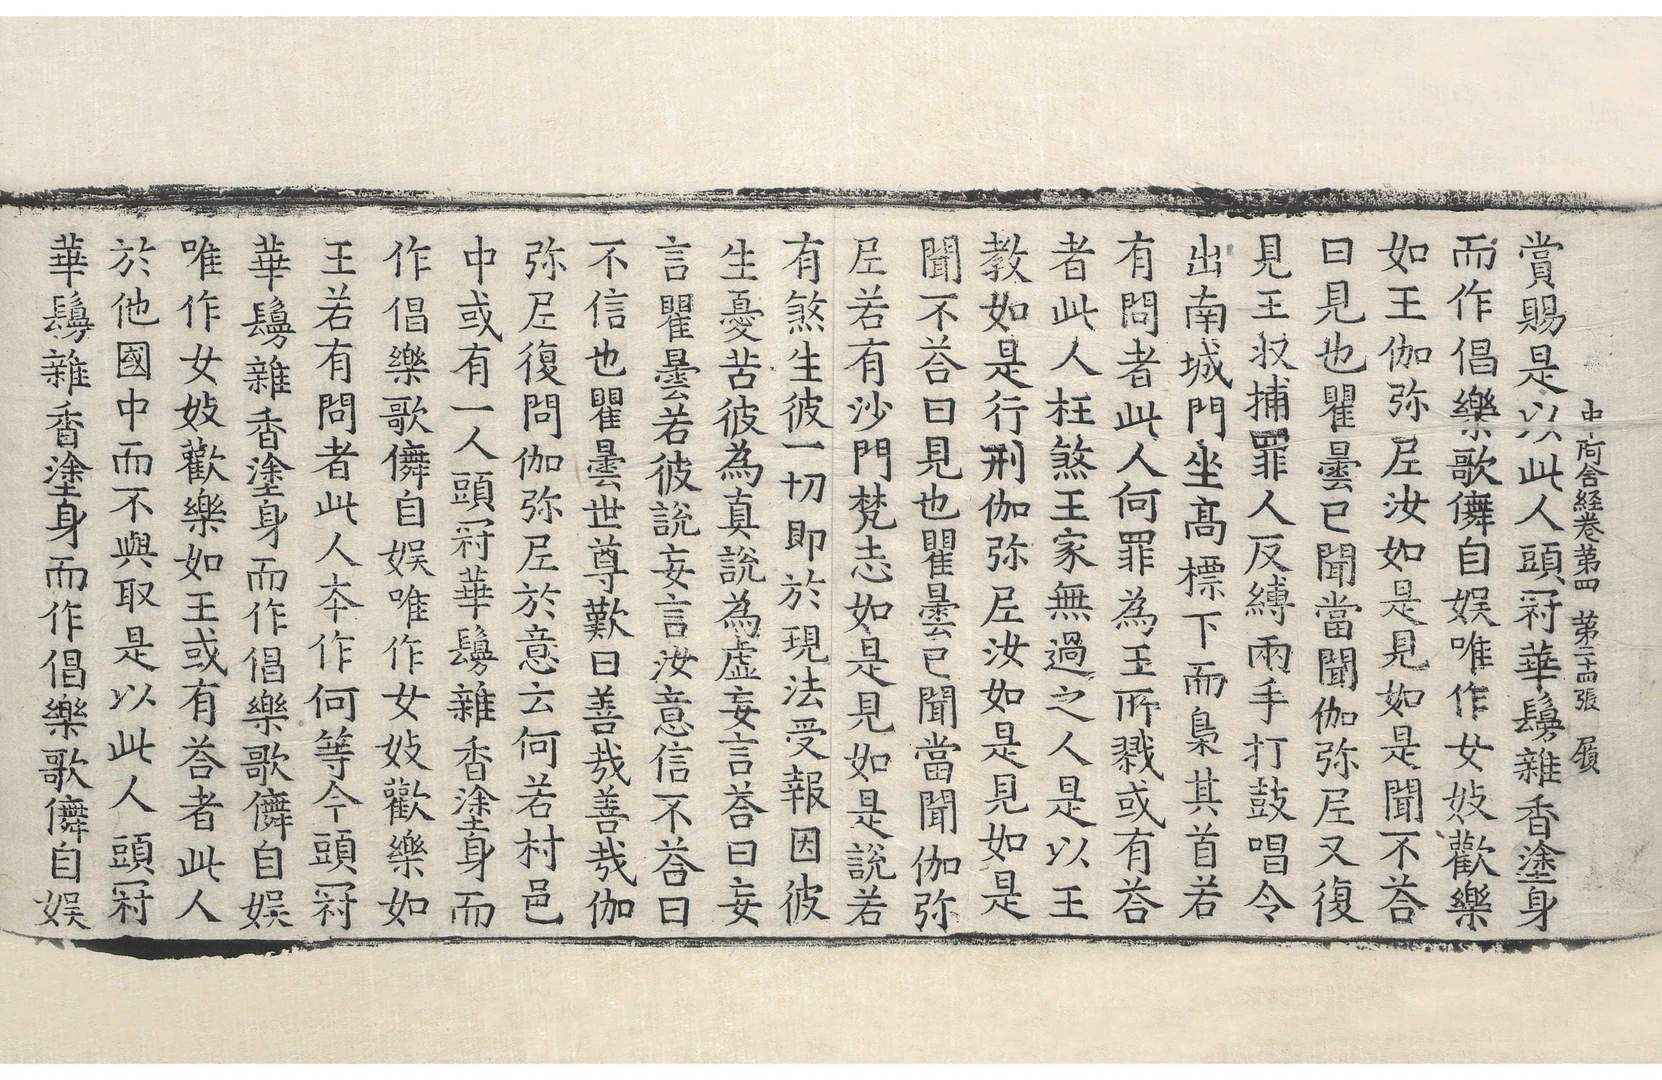 中阿含経卷第四　第二十四張　履
賞賜是以此人頭冠華鬘雜香塗身
而作倡樂歌儛自娱唯作女妓歡樂
如王伽弥尼汝如是見如是聞不荅
曰見也瞿曇已聞當聞伽弥尼又復
見王收捕罪人反縛兩手打鼓唱令
出南城門坐高標下而梟其首若
有問者此人何罪為王所戮或有荅
者此人枉煞王家無過之人是以王
教如是行刑伽弥尼汝如是見如是
聞不荅曰見也瞿曇已聞當聞伽弥
尼若有沙門梵志如是見如是說若
有煞生彼一切即於現法受報因彼
生憂苦彼為真說為虛妄言荅曰妄
言瞿曇若彼說妄言汝意信不荅曰
不信也瞿曇世尊歎曰善哉善哉伽
弥尼復問伽弥尼於意云何若村邑
中或有一人頭冠華鬘雜香塗身而
作倡樂歌儛自娱唯作女妓歡樂如
王若有問者此人夲作何等今頭冠
華鬘雜香塗身而作倡樂歌儛自娱
唯作女妓歡樂如王或有荅者此人
於他國中而不與取是以此人頭冠
華鬘雜香塗身而作倡樂歌儛自娱